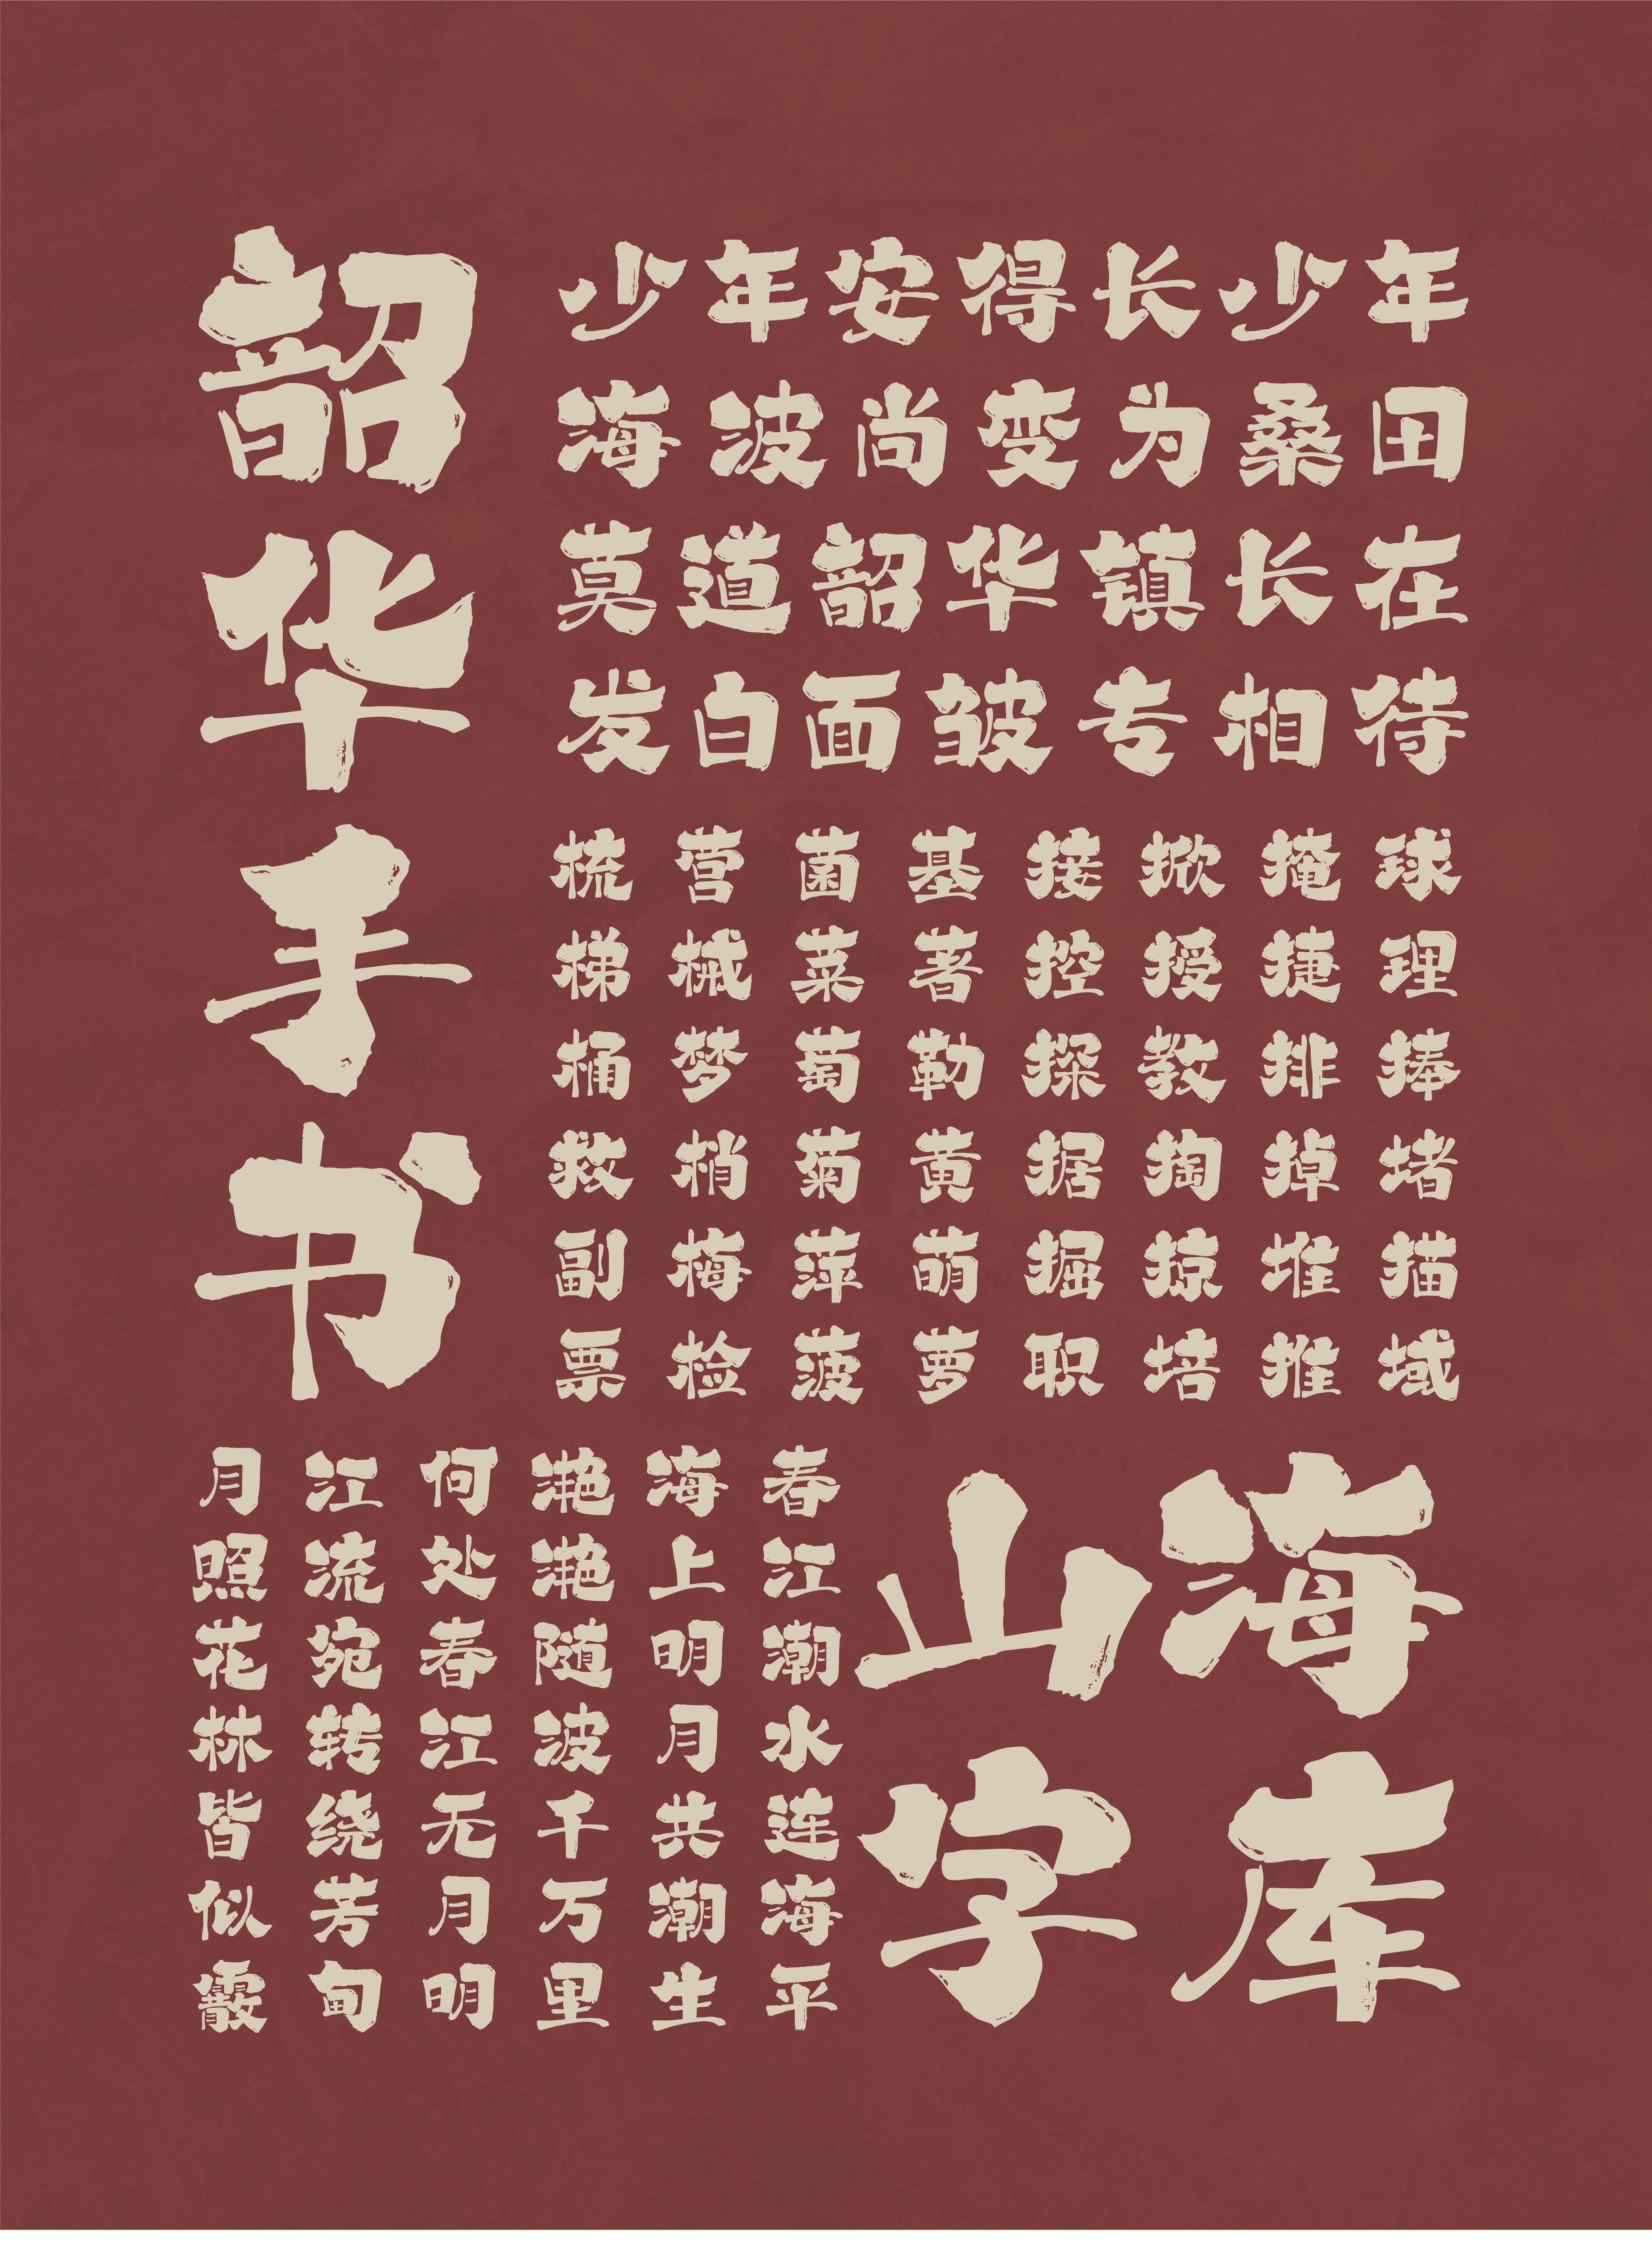 韶华手书
少年安得长少年
海波尚变为桑田
莫道韶华镇长在
发白面皱专相待
球理捧堵描域
掩捷排掉堆推
掀授教掏掠培
接控探据掘职
基著勒黄萌萝
菌菜萄菊萍菠
营械梦梢梅检
梳梯桶救副票
山海
字库
春江潮水连海平
海上明月共潮生
滟滟随波千万里
何处春江无月明
江流宛转绕芳甸
月照花林皆似霰